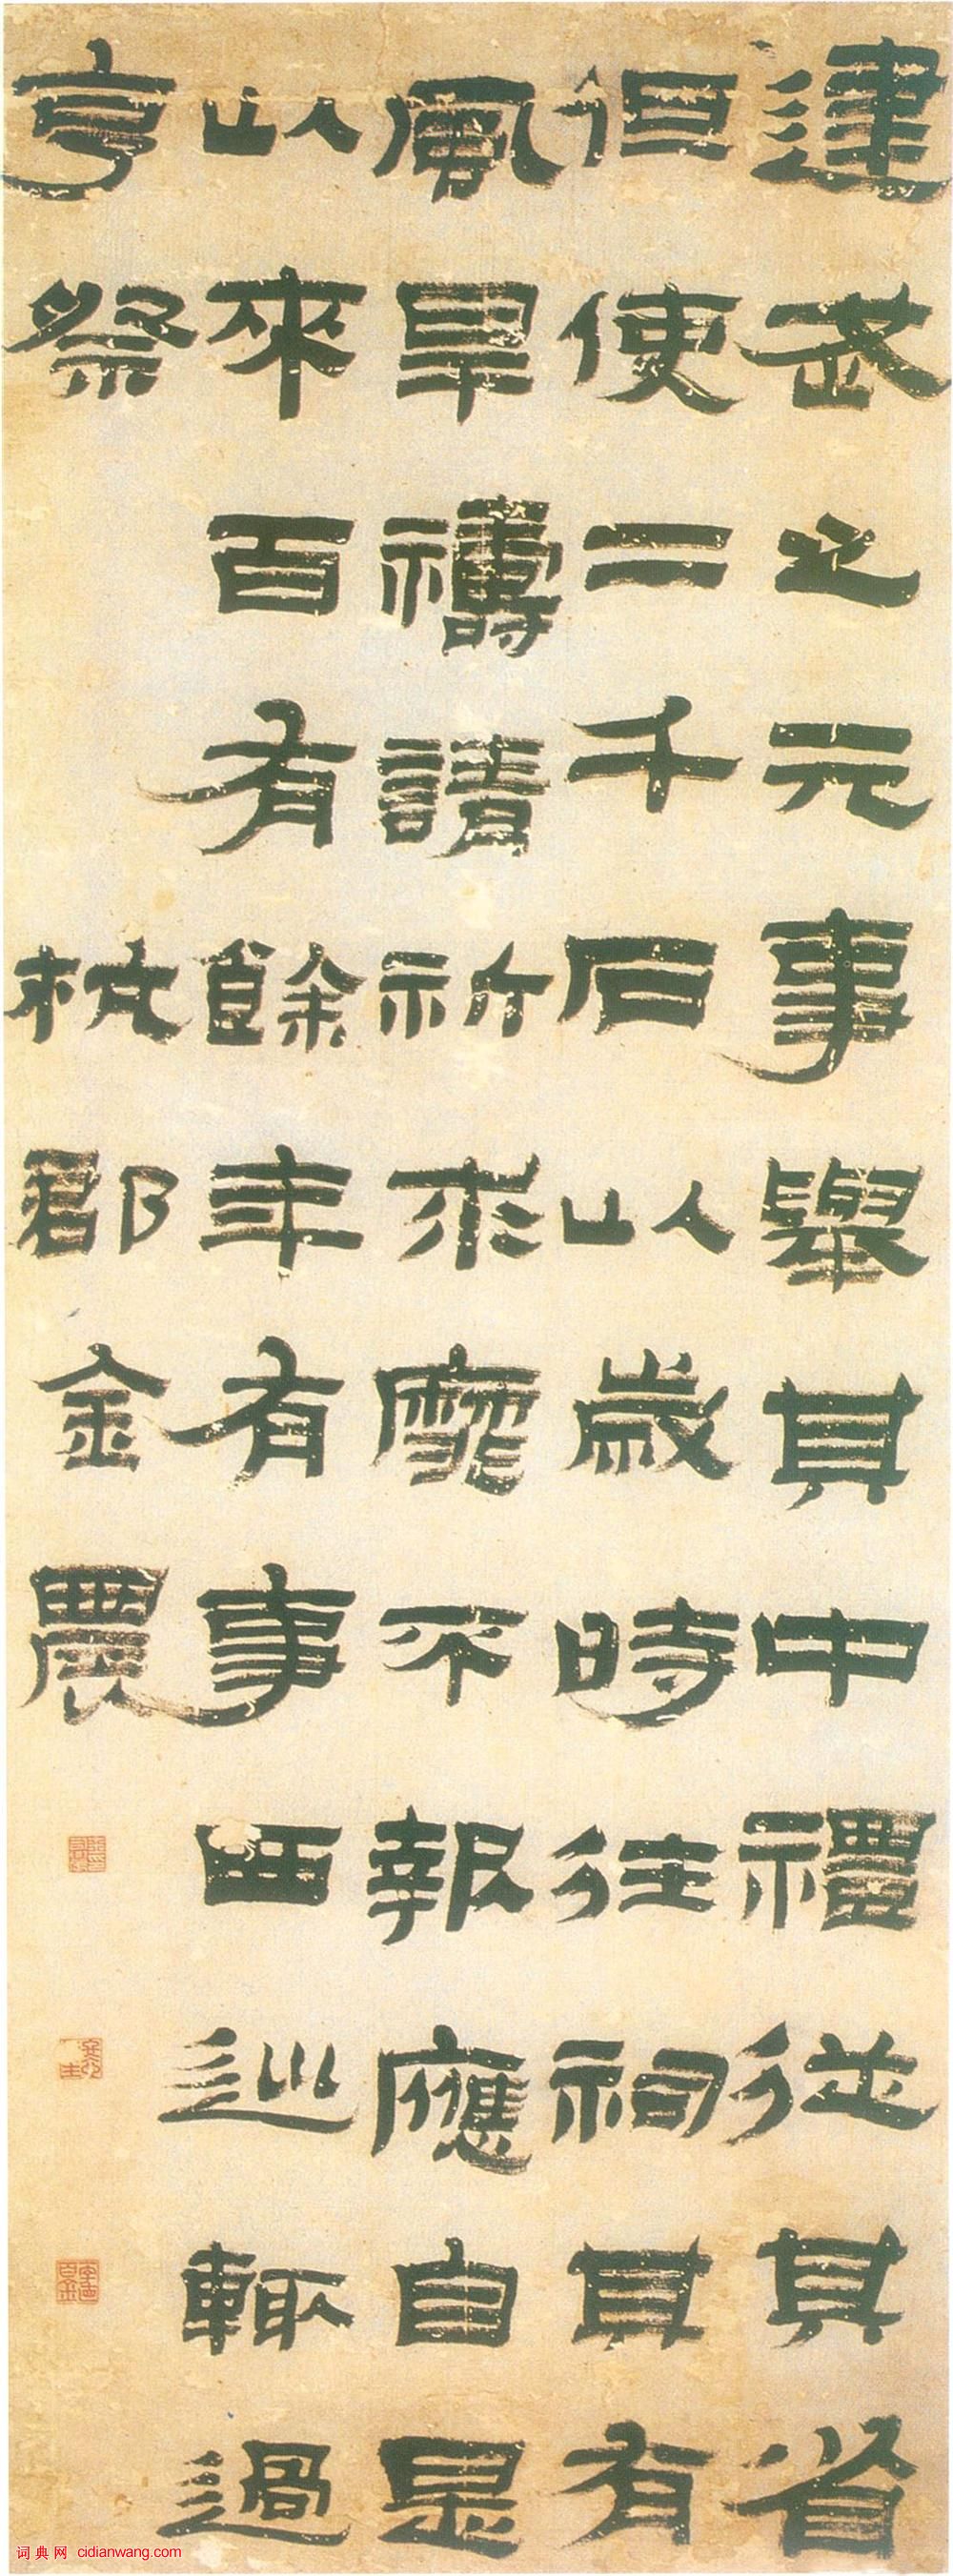 建武之元事舉其中禮從其省
但使二千石以歲時往祠其有
風旱禱請祈求靡不報應自是
以來百有餘年有事西巡輒過
亨祭
杭郡金農
词典网 cidianwang.com